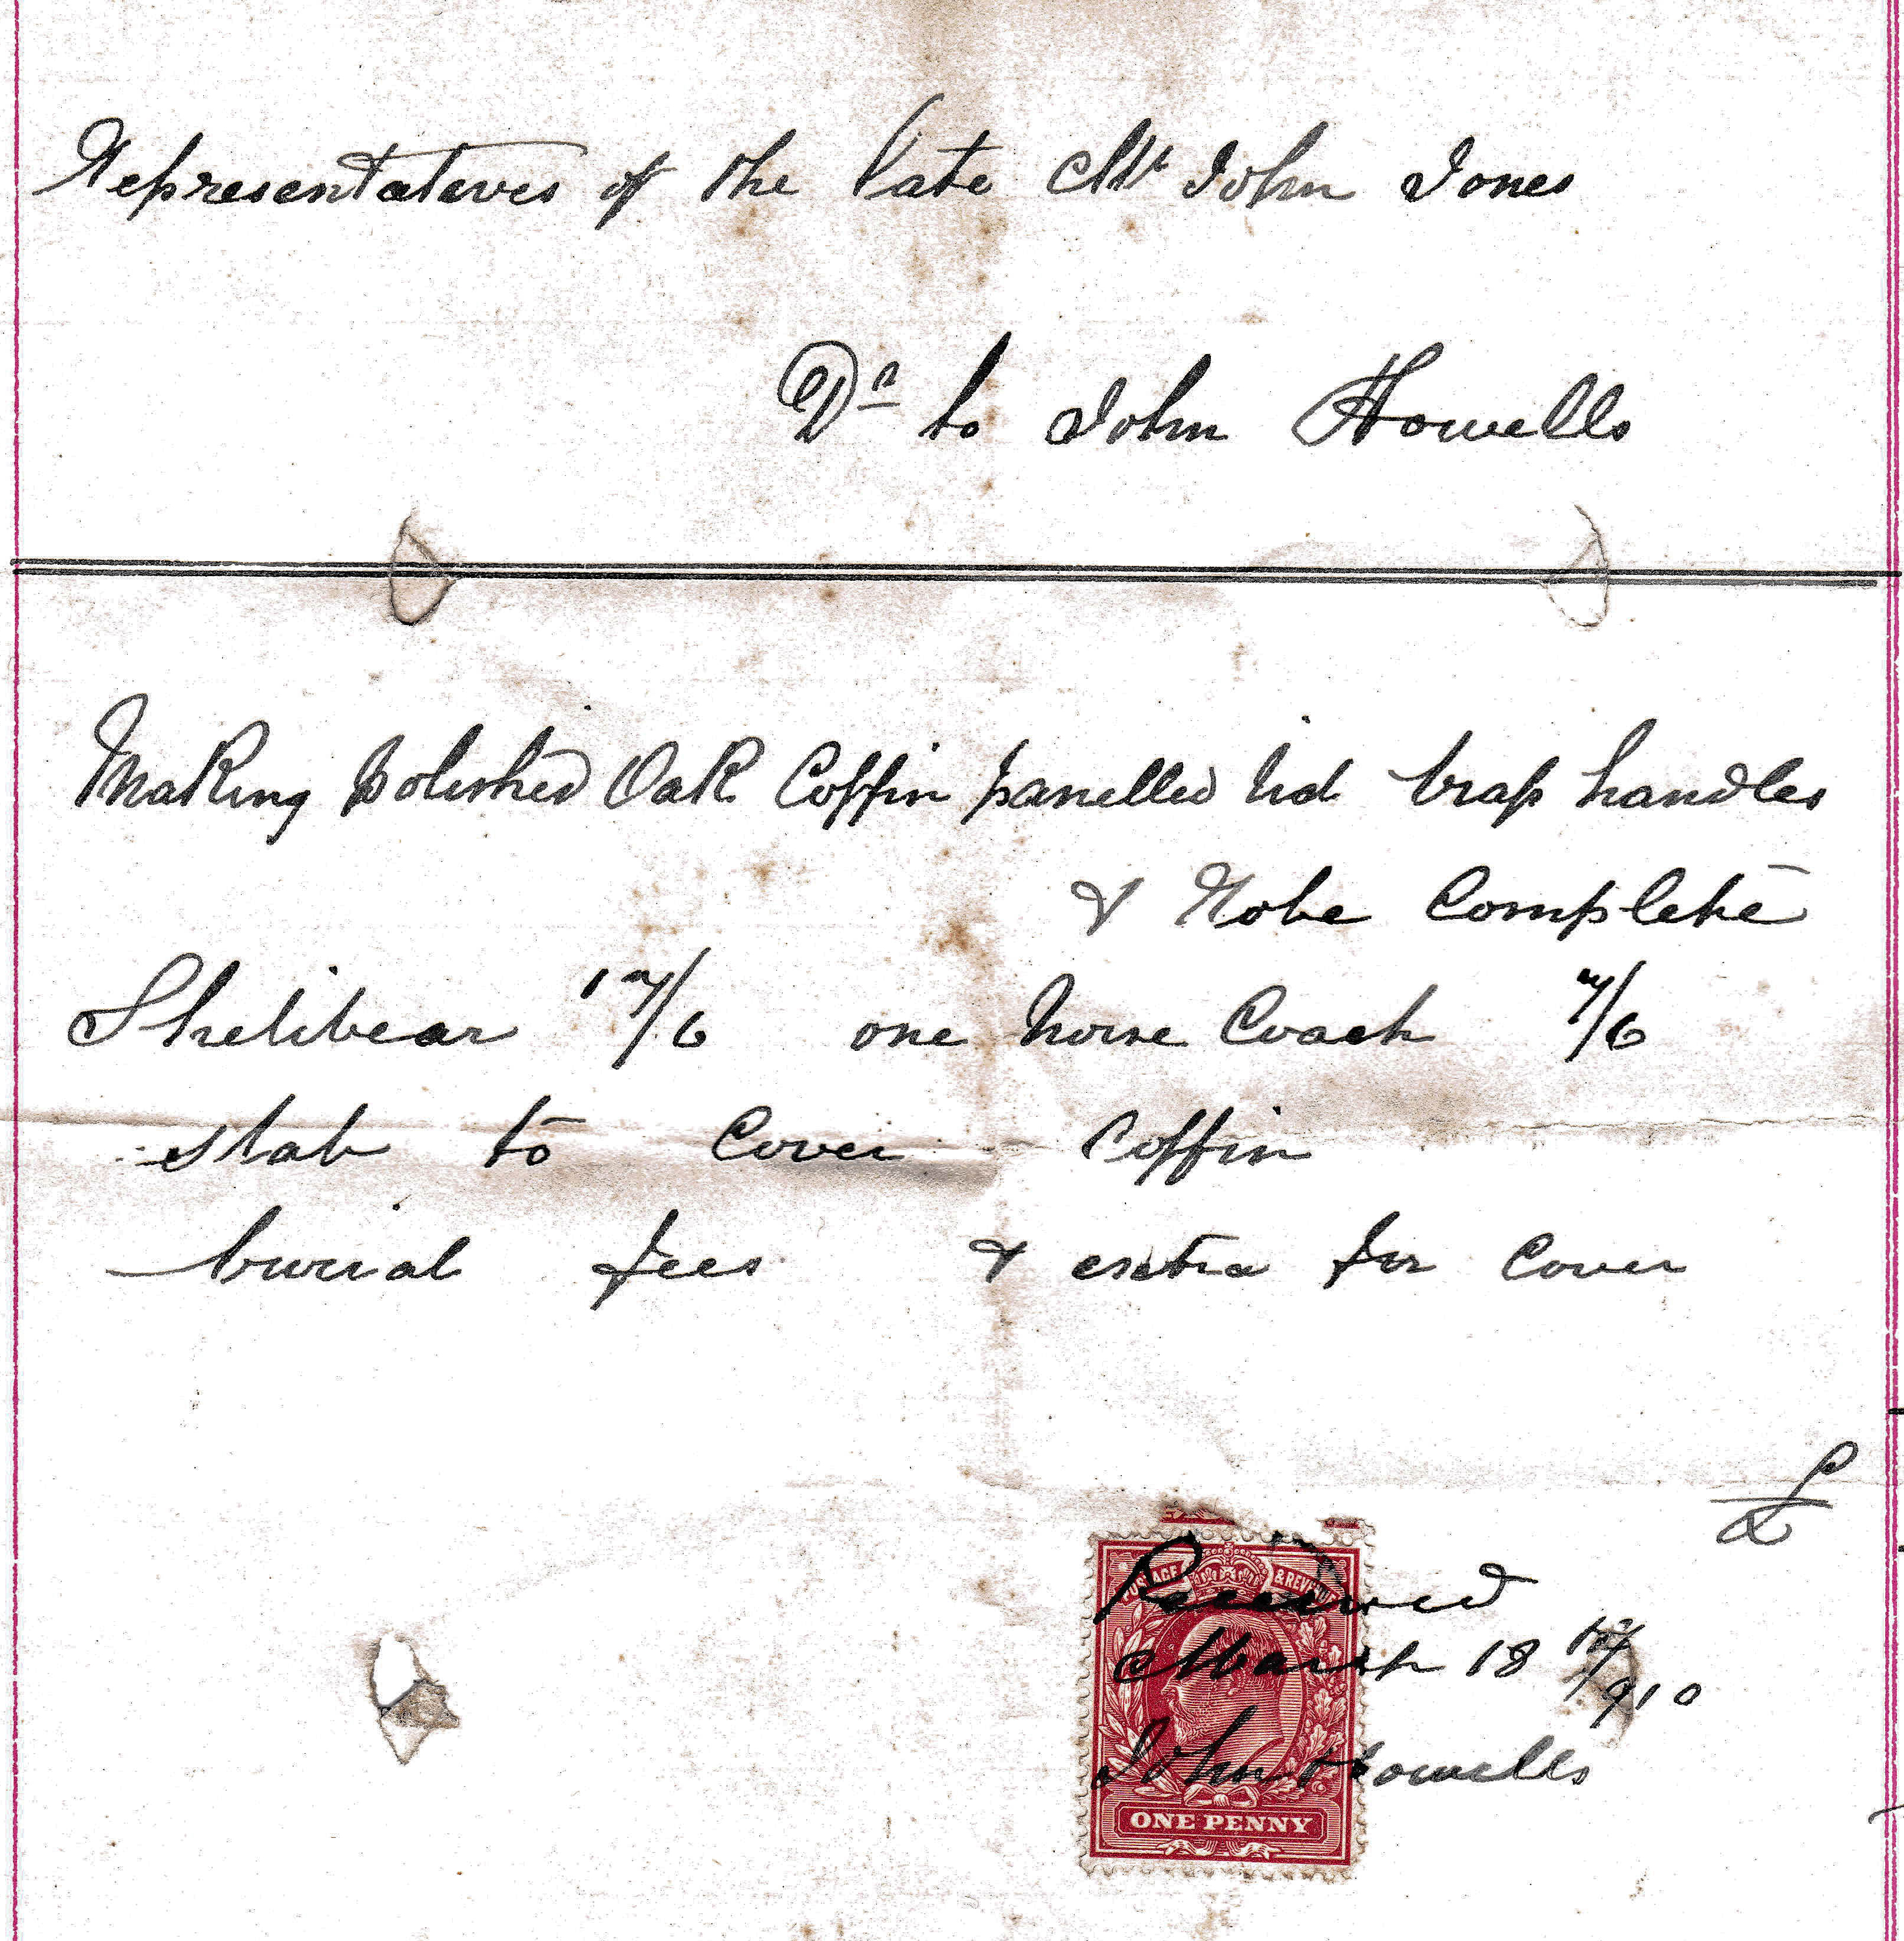 Representateves of the late Mr John Jones
Dr to John Howells
Making polished Oak Coffin panelled lid brass handles
& Robe Complete
Shelibear 17/6 one horse Coach 7/6
slab to Cover Coffin
burial fees & extra for Cover
£
POSTAGE & REVENUE
Received
March 18 /910
John Howells
ONE PENNY